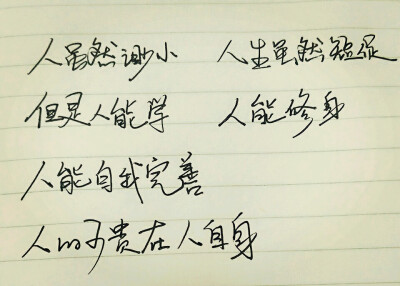 人虽然渺小 人生虽然短促
但是人能学 人能修身
人能自我完善
人的可贵在人自身